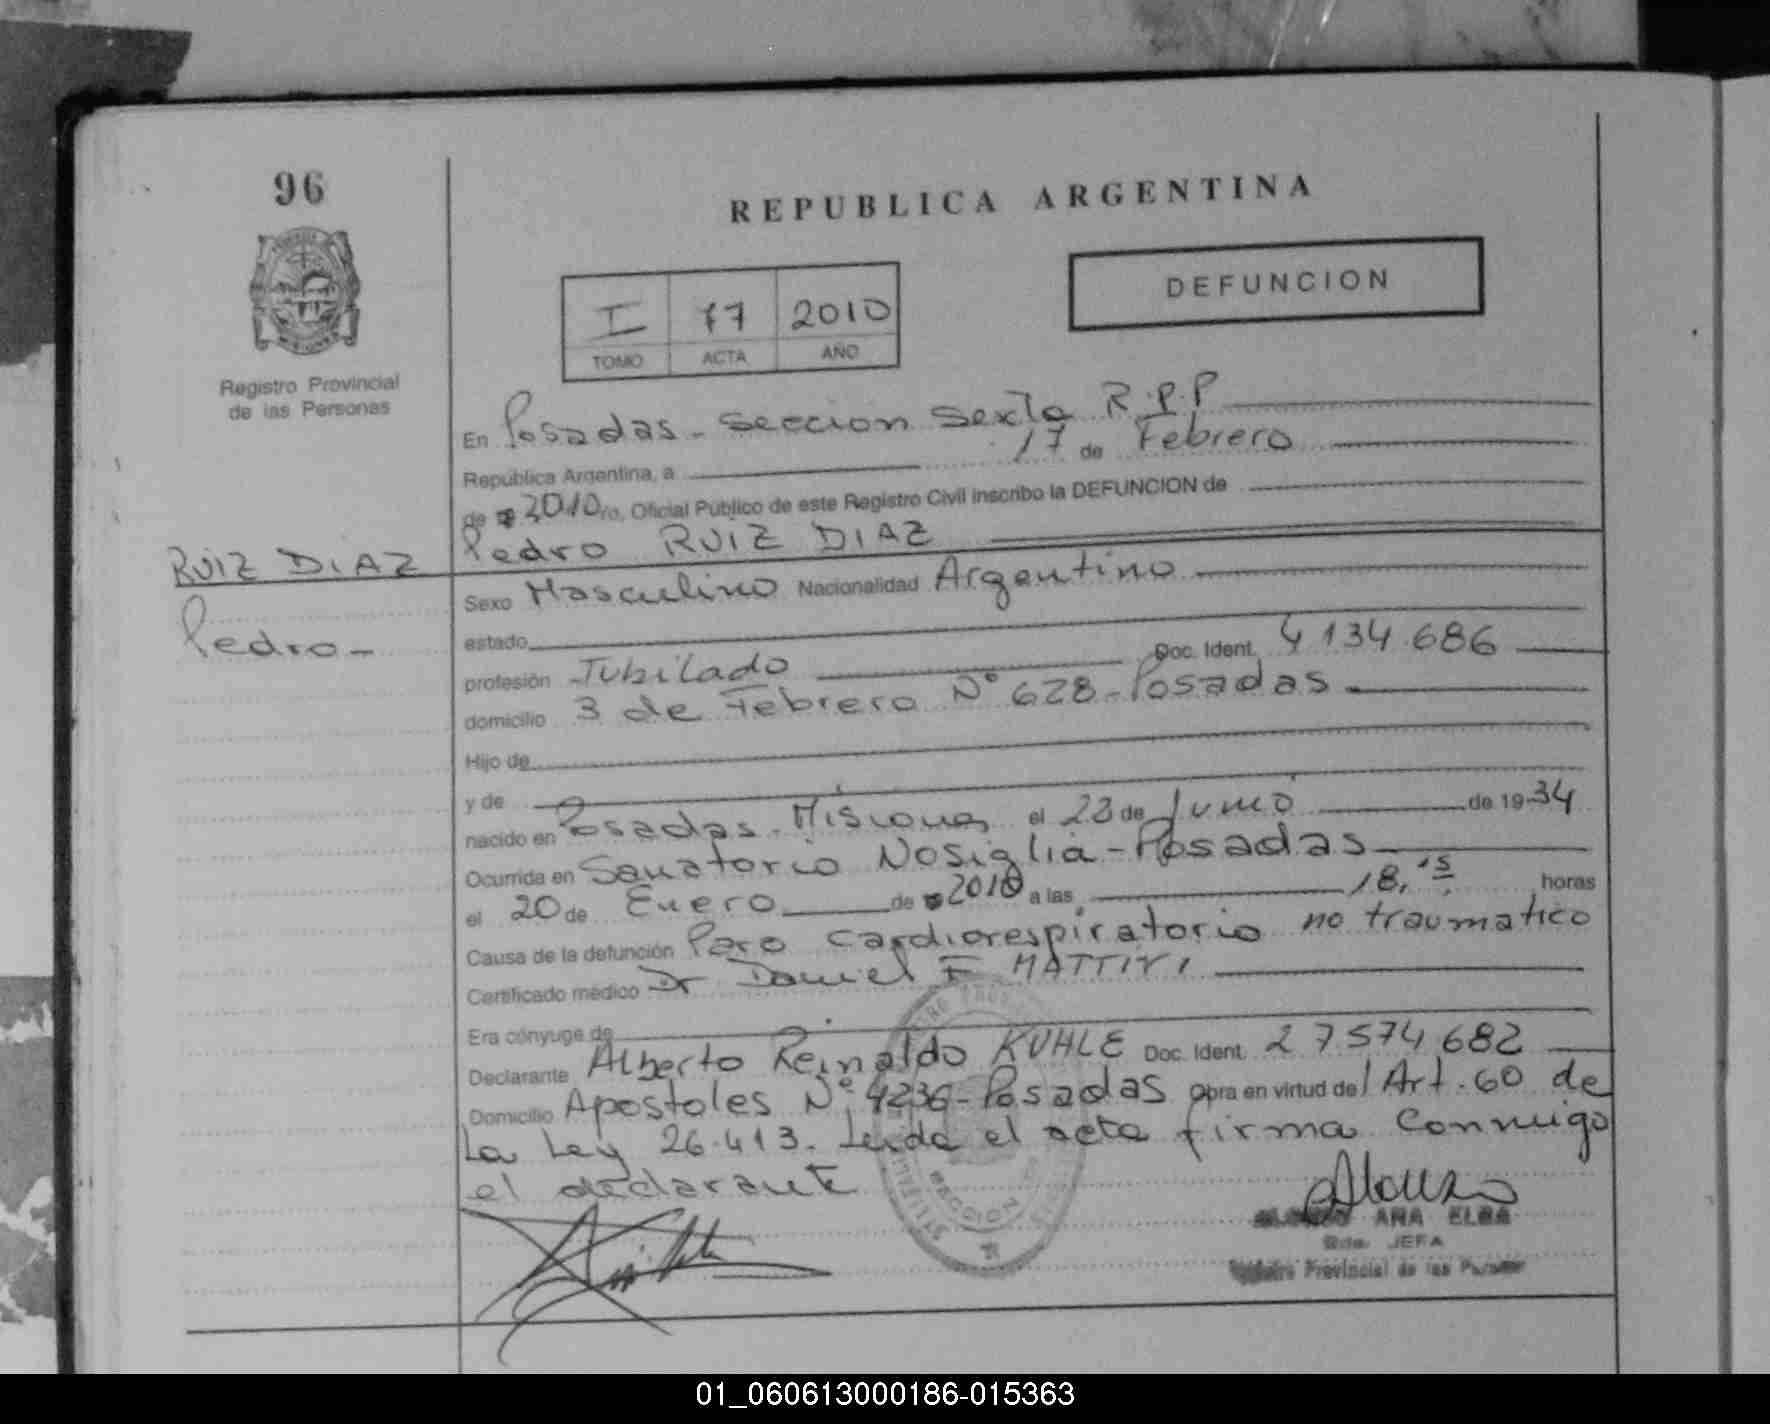 96
REPUBLICA ARGENTINA
DEFUNCION
I 77 2010
TOMO ACTA AÑO
Registro Provincial
de las Personas
En Posadas - Seccion Sexta R.P.P
República Argentina, a 17 de Febrero
de 2010 yo, Oficial Público de este Registro Civil inscribo la DEFUNCION de
RUIZ DIAZ
Pedro -
Pedro RUIZ DIAZ
Sexo Masculino Nacionalidad Argentino
estado
profesión Jubilado Doc. Ident. 4134.686
domicilio 3 de Febrero N° 628 - Posadas
Hijo de
y de
nacido en Posadas - Misiones el 23 de Junio de 1934
Ocurrida en Sanatorio Nosiglia - Posadas
el 20 de Enero de 2010 a las 18,15 horas
Causa de la defunción Paro cardiorespiratorio no traumatico
Certificado médico Dr Daniel F MATTIVI
Era cónyuge de
Declarante Alberto Reinaldo KUHLE Doc. Ident. 27574682
Domicilio Apostoles N° 4236 - Posadas Obra en virtud del Art. 60 de
La Ley 26.413. Leida el acta firma conmigo
el declarante
SECCION
ALONSO ANA ELBA
JEFA
Registro Provincial de las Personas
01_060613000186-015363